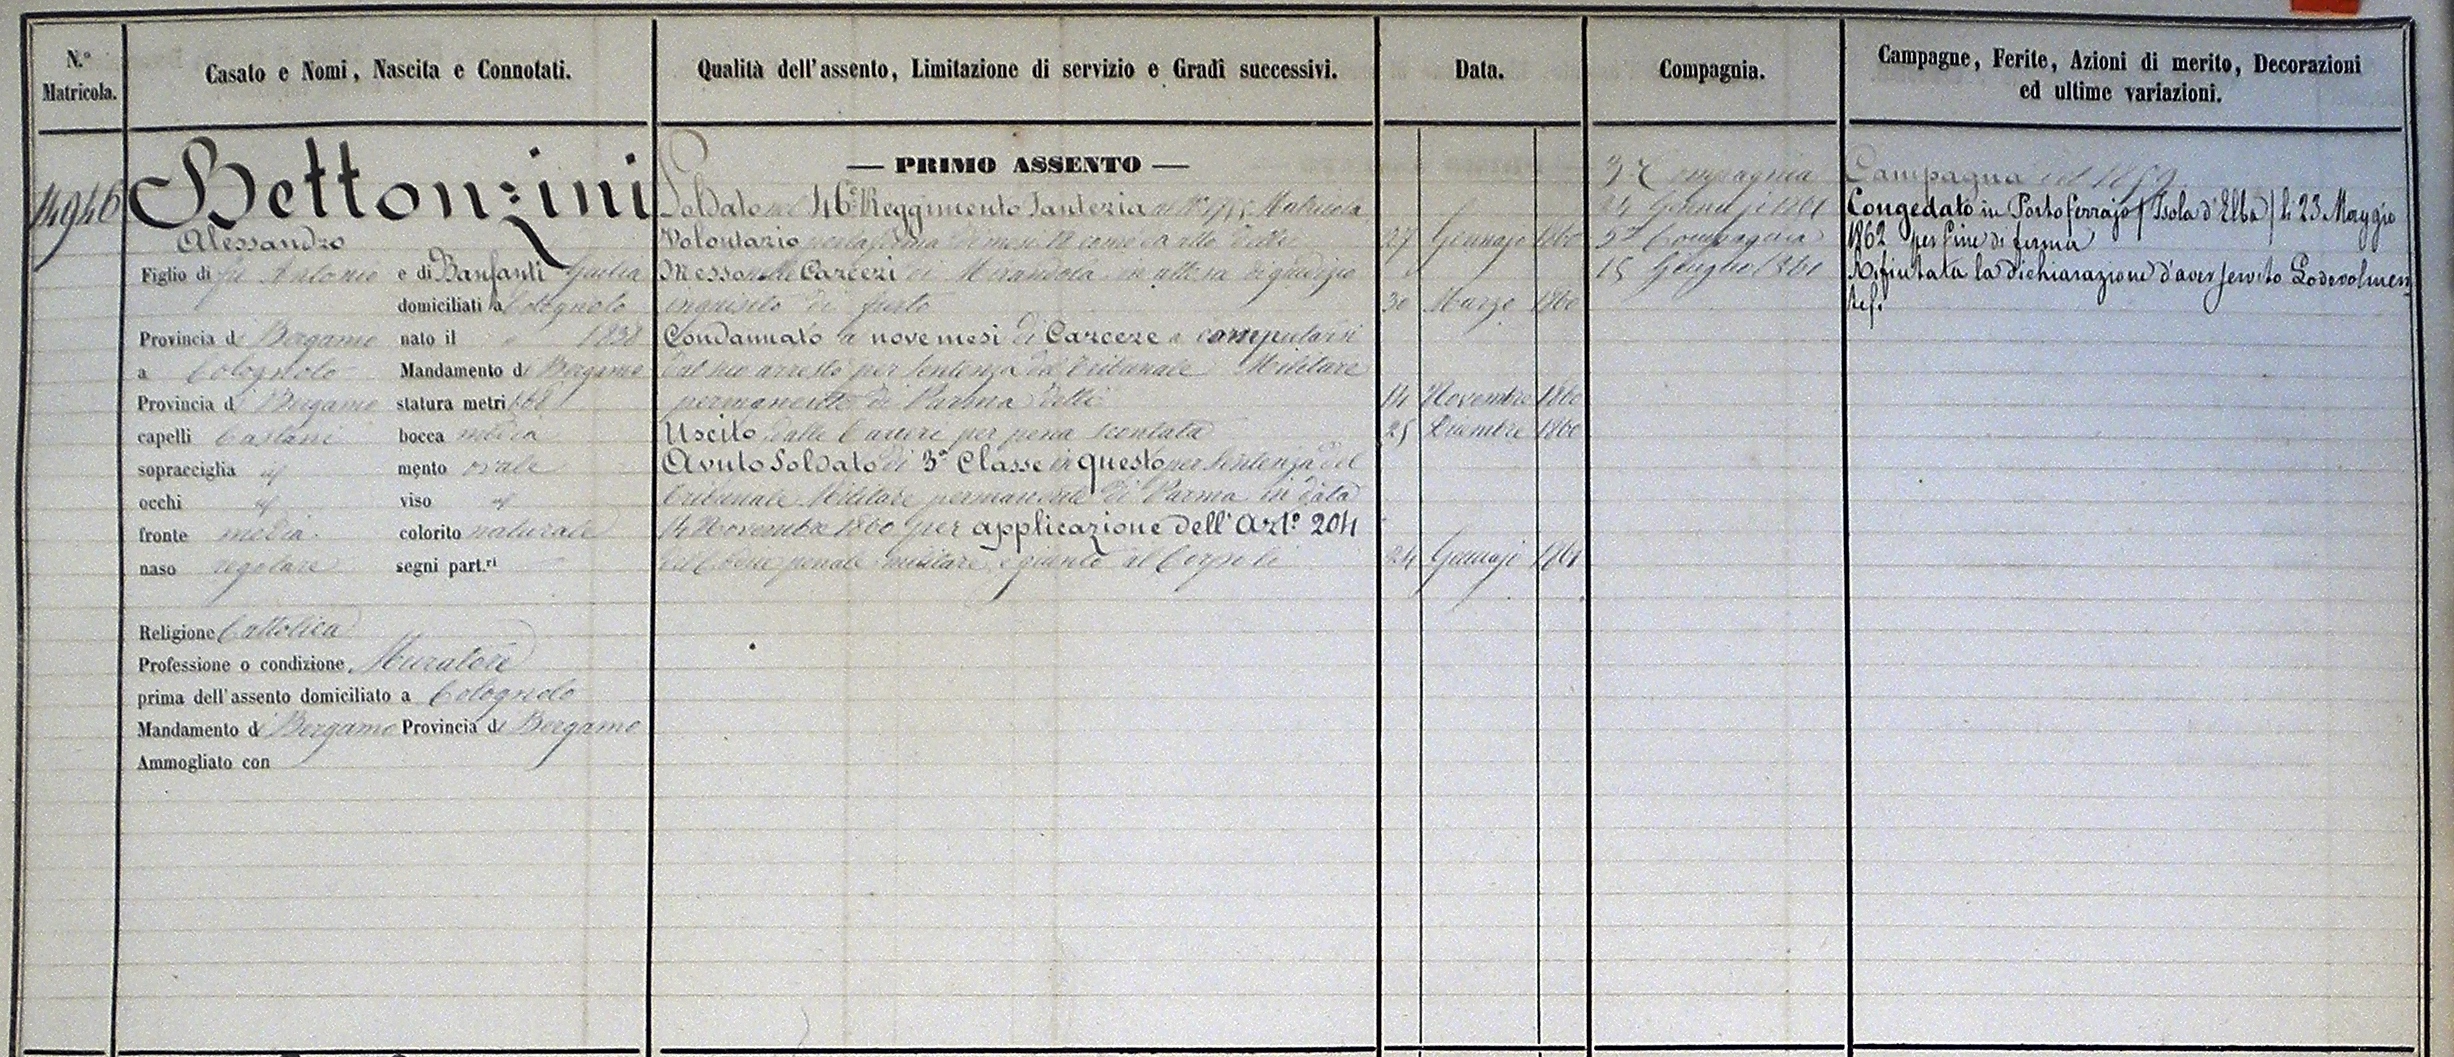 N.º Matricola.
Casato e Nomi, Nascita e Connotati.
Qualità dell'assento, Limitazione di servizio e Gradi successivi.
Data.
Compagnia.
Campagne, Ferite, Azioni di merito, Decorazioni
ed ultime variazioni.
14946
Bettonzini
Alessandro
Figlio di fu Antonio e di Banfanti Giulia
domiciliati a Colognolo
Provincia di Bergamo nato il 1838
a Colognolo Mandamento di Bergamo
Provincia di Bergamo statura metri 1 68
capelli Castani bocca media
sopracciglia id mento ovale
occhi id viso id
fronte media colorito naturale
naso regolare segni part.ri
Religione Cattolica
Professione o condizione Muratore
prima dell'assento domiciliato a Colognolo
Mandamento di Bergamo Provincia di Bergamo
Ammogliato con
— PRIMO ASSENTO —
Soldato nel 46º Reggimento Fanteria al Nº Matricola
Volontario per la ferma di mesi 18 come da atto delli 27 Gennajo 1860
Messo nelle Carceri di Mirandola in attesa di giudizio
inquisito di furto 30 Marzo 1860
Condannato a nove mesi di Carcere a computarsi
dal suo arresto per sentenza del Tribunale Militare
permanente di Parma delli 14 Novembre 1860
Uscito dalle Carceri per pena scontata 25 Dicembre 1860
Avuto Soldato di 3ª Classe in questo per sentenza del
Tribunale Militare permanente di Parma in data
14 Novembre 1860 per applicazione dell'Artº 204
del Codice penale militare e giunto al Corpo li 24 Gennajo 1861
3ª Compagnia
24 Gennajo 1861
5ª Compagnia
15 Giugno 1861
Campagna del 1859
Congedato in Portoferrajo (Isola d'Elba) li 23 Maggio
1862 per fine di ferma
Rifiutata la dichiarazione d'aver servito Lodevolmen
te